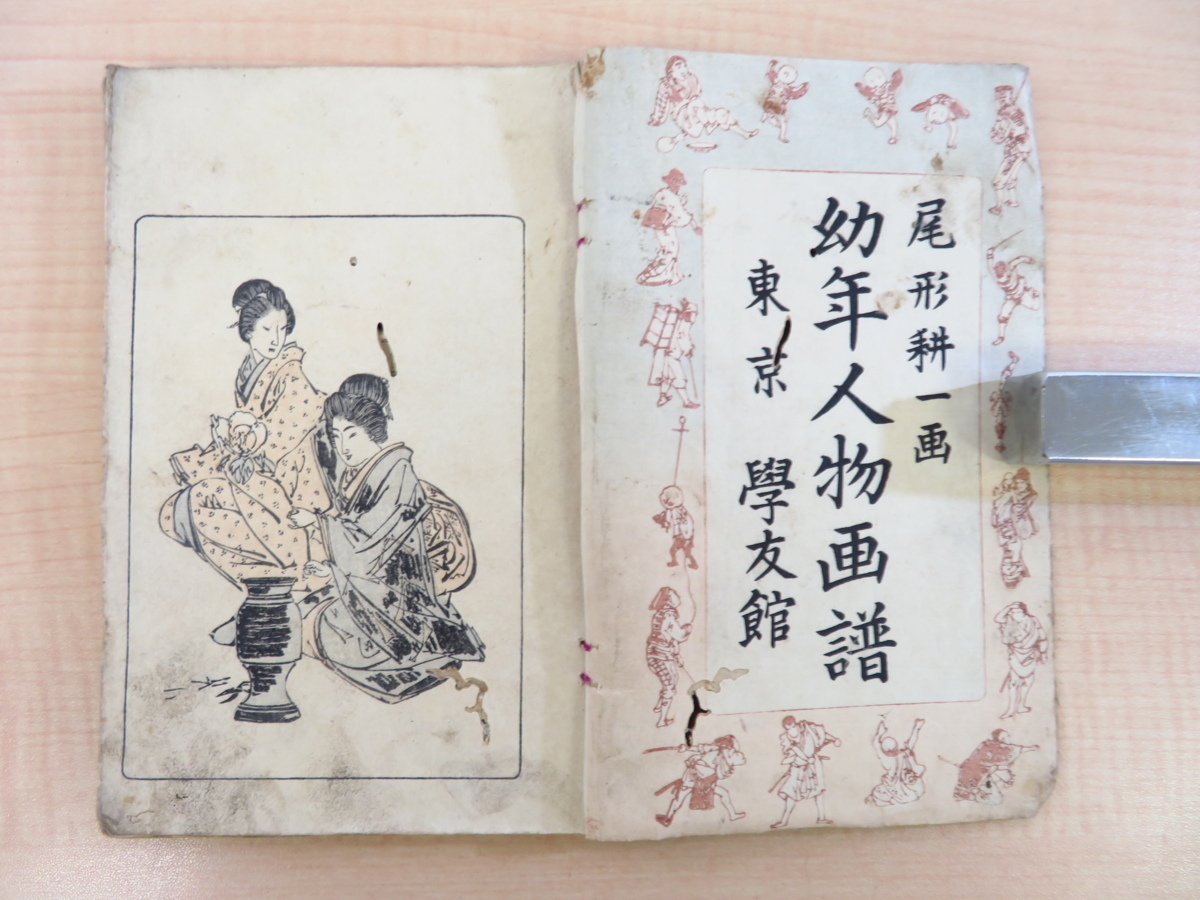 尾形耕一画
幼年人物画譜
東京 學友館